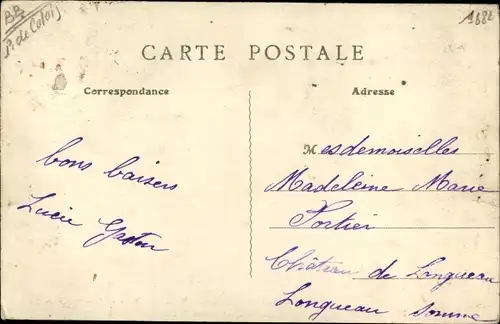 1682
CARTE POSTALE
Correspondance
Adresse
bons baisers
Lucie Gaston
Mesdemoiselles
Madeleine Marie
Portier
Château de Longueau
Longueau Somme